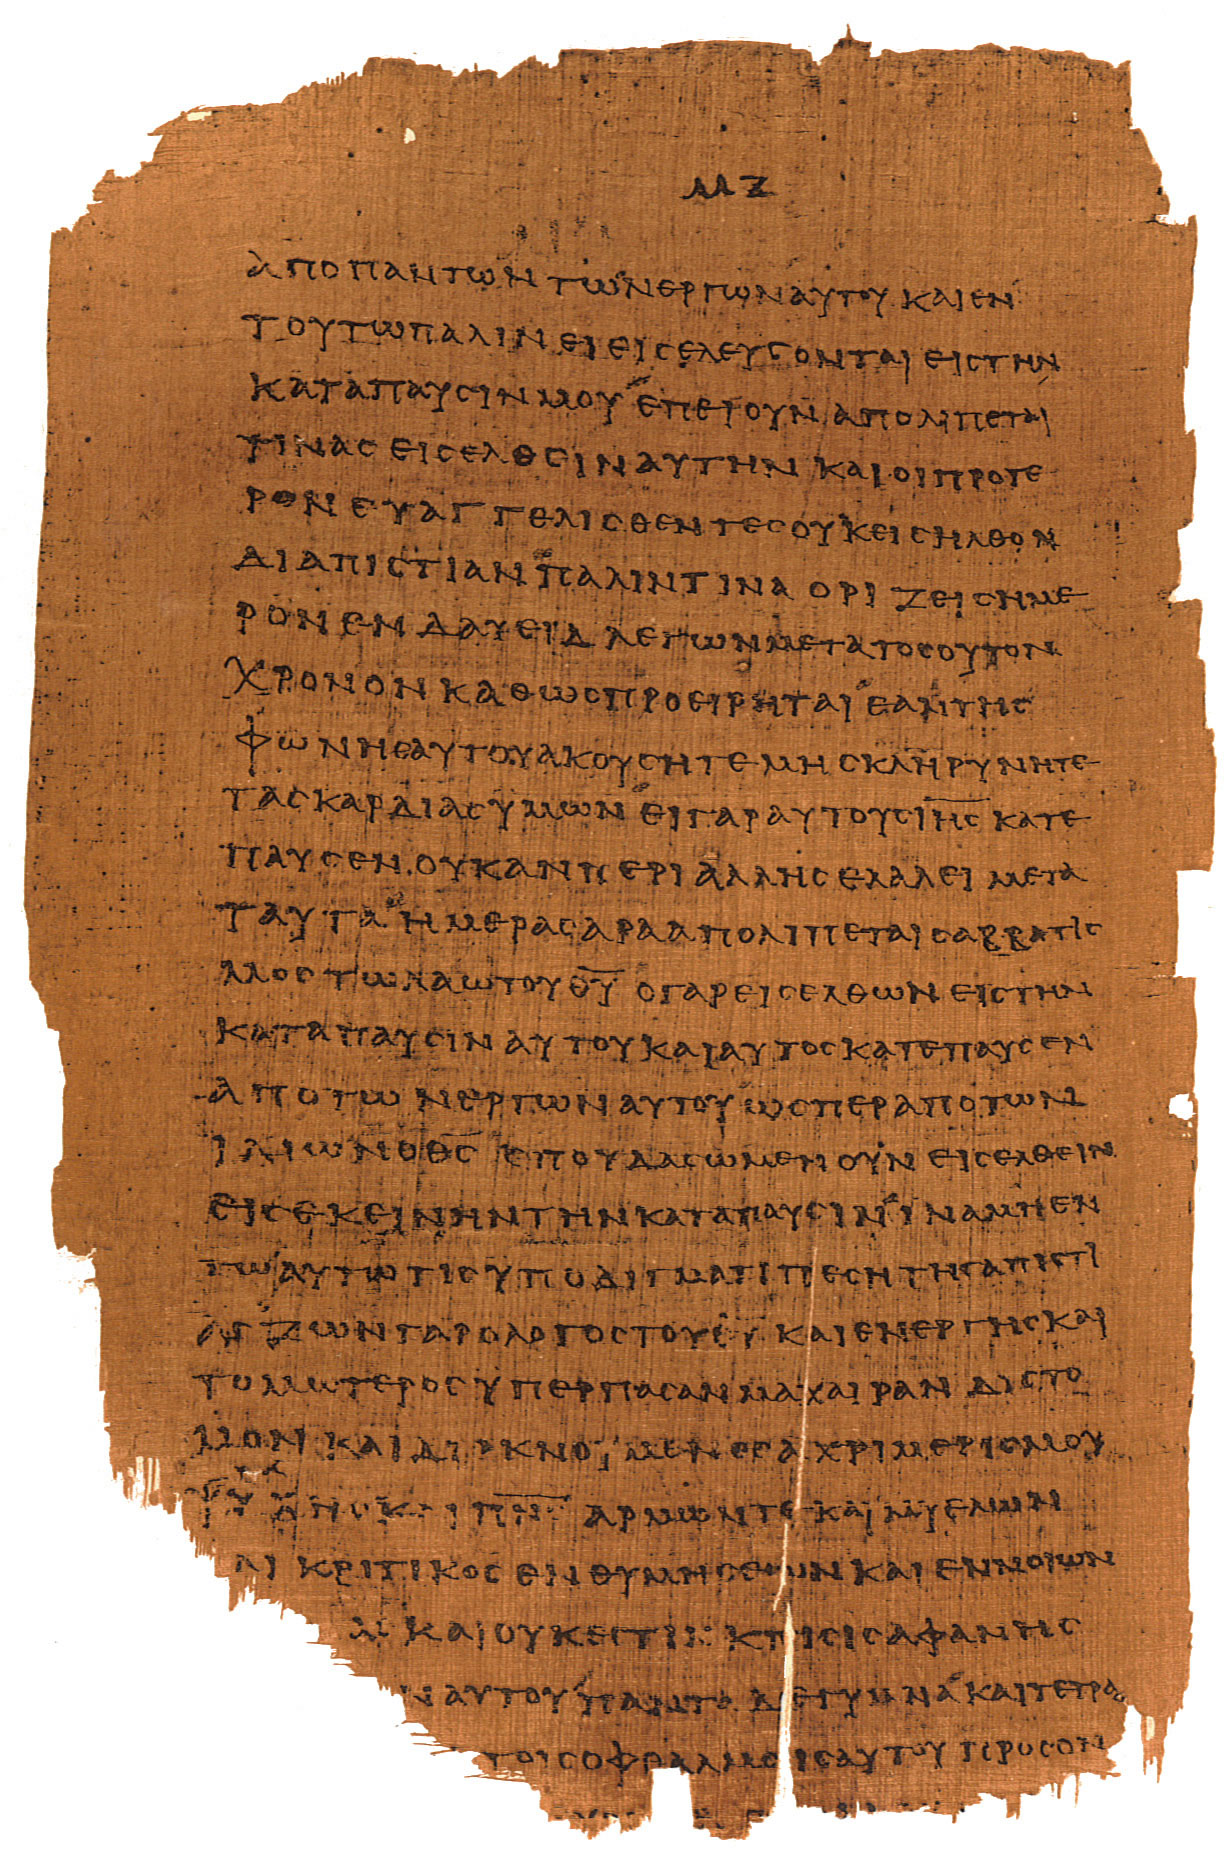 ΜΖ
ΑΠΟ ΠΑΝΤΩΝ ΤΩΝ ΕΡΓΩΝ ΑΥΤΟΥ ΚΑΙ ΕΝ
ΤΟΥΤΩ ΠΑΛΙΝ ΕΙ ΕΙΣΕΛΕΥΣΟΝΤΑΙ ΕΙΣ ΤΗΝ
ΚΑΤΑΠΑΥΣΙΝ ΜΟΥ ΕΠΕΙ ΟΥΝ ΑΠΟΛΙΠΕΤΑΙ
ΤΙΝΑΣ ΕΙΣΕΛΘΕΙΝ ΑΥΤΗΝ ΚΑΙ ΟΙ ΠΡΟΤΕ
ΡΟΝ ΕΥΑΓΓΕΛΙΣΘΕΝΤΕΣ ΟΥΚ ΕΙΣΗΛΘΟΝ
ΔΙ ΑΠΙΣΤΙΑΝ ΠΑΛΙΝ ΤΙΝΑ ΟΡΙΖΕΙ ΣΗΜΕ
ΡΟΝ ΕΝ ΔΑΥΕΙΔ ΛΕΓΩΝ ΜΕΤΑ ΤΟΣΟΥΤΟΝ
ΧΡΟΝΟΝ ΚΑΘΩΣ ΠΡΟΕΙΡΗΤΑΙ ΕΑΝ ΤΗΣ
ΦΩΝΗΕ ΑΥΤΟΥ ΑΚΟΥΣΗΤΕ ΜΗ ΣΚΛΗΡΥΝΗΤΕ
ΤΑΣ ΚΑΡΔΙΑΣ ΥΜΩΝ ΕΙ ΓΑΡ ΑΥΤΟΥΣ ΙΗΣ ΚΑΤΕ
ΠΑΥΣΕΝ ΟΥΚ ΑΝ ΠΕΡΙ ΑΛΛΗΣ ΕΛΑΛΕΙ ΜΕΤΑ
ΤΑΥΤΑ ΗΜΕΡΑΣ ΑΡΑ ΑΠΟΛΙΠΕΤΑΙ ΣΑΒΒΑΤΙΣ
ΜΟΣ ΤΩ ΛΑΩ ΤΟΥ ΘΥ Ο ΓΑΡ ΕΙΣΕΛΘΩΝ ΕΙΣ ΤΗΝ
ΚΑΤΑΠΑΥΣΙΝ ΑΥΤΟΥ ΚΑΙ ΑΥΤΟΣ ΚΑΤΕΠΑΥΣΕΝ
ΑΠΟ ΤΩΝ ΕΡΓΩΝ ΑΥΤΟΥ ΩΣΠΕΡ ΑΠΟ ΤΩΝ
ΙΔΙΩΝ Ο ΘΣ ΣΠΟΥΔΑΣΩΜΕΝ ΟΥΝ ΕΙΣΕΛΘΕΙΝ
ΕΙΣ ΕΚΕΙΝΗΝ ΤΗΝ ΚΑΤΑΠΑΥΣΙΝ ΙΝΑ ΜΗ ΕΝ
ΤΩ ΑΥΤΩ ΤΙΣ ΥΠΟΔΙΓΜΑΤΙ ΠΕΣΗ ΤΗΣ ΑΠΙΣΤΙ
ΑΣ ΖΩΝ ΓΑΡ Ο ΛΟΓΟΣ ΤΟΥ ΘΥ ΚΑΙ ΕΝΕΡΓΗΣ ΚΑΙ
ΤΟΜΩΤΕΡΟΣ ΥΠΕΡ ΠΑΣΑΝ ΜΑΧΑΙΡΑΝ ΔΙΣΤΟ
ΜΟΝ ΚΑΙ ΔΙΙΚΝΟΥΜΕΝΟΣ ΑΧΡΙ ΜΕΡΙΣΜΟΥ
ΨΥΧΗΣ ΚΑΙ ΠΝΣ ΑΡΜΩΝ ΤΕ ΚΑΙ ΜΥΕΛΩΝ
ΑΙ ΚΡΙΤΙΚΟΣ ΕΝΘΥΜΗΣΕΩΝ ΚΑΙ ΕΝΝΟΙΩΝ
ΚΑΙ ΟΥΚ ΕΣΤΙΝ ΚΤΙΣΙΣ ΑΦΑΝΗΣ
Ν ΑΥΤΟΥ ΠΑΝΤΑ ΔΕ ΓΥΜΝΑ ΚΑΙ ΤΕΤΡΑ
ΤΟΙΣ ΟΦΘΑΛΜΟΙΣ ΑΥΤΟΥ ΠΡΟΣ ΟΝ